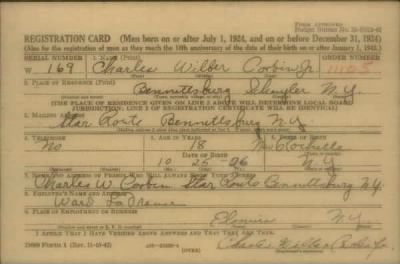 FORM APPROVED
REGISTRATION CARD (Men born on or after July 1, 1924, and on or before December 31, 1924)
(Also for the registration of men as they reach the 18th anniversary of the date of their birth on or after January 1, 1925.)
SERIAL NUMBER 1. NAME (Print) ORDER NUMBER
W 169 Charles Wilber Corbin Jr. 11105
(First) (Middle) (Last)
2. PLACE OF RESIDENCE (Print)
Bennettsburg Schuyler N.Y.
[THE PLACE OF RESIDENCE GIVEN ON LINE 2 ABOVE WILL DETERMINE LOCAL BOARD
JURISDICTION; LINE 2 OF REGISTRATION CERTIFICATE WILL BE IDENTICAL]
3. MAILING ADDRESS
Star Route Bennettsburg N.Y.
4. TELEPHONE 5. AGE IN YEARS 6. PLACE OF BIRTH
No 18 New Rochelle
DATE OF BIRTH
10 25 26 N.Y.
7. NAME AND ADDRESS OF PERSON WHO WILL ALWAYS KNOW YOUR ADDRESS
Charles W. Corbin Star Route Bennettsburg N.Y.
8. EMPLOYER'S NAME AND ADDRESS
Ward
9. PLACE OF EMPLOYMENT OR BUSINESS
Elmira N.Y.
I AFFIRM THAT I HAVE VERIFIED ABOVE ANSWERS AND THAT THEY ARE TRUE.
DSS FORM 1 (Rev. 11-16-42) (OVER) Charles Wilber Corbin Jr.